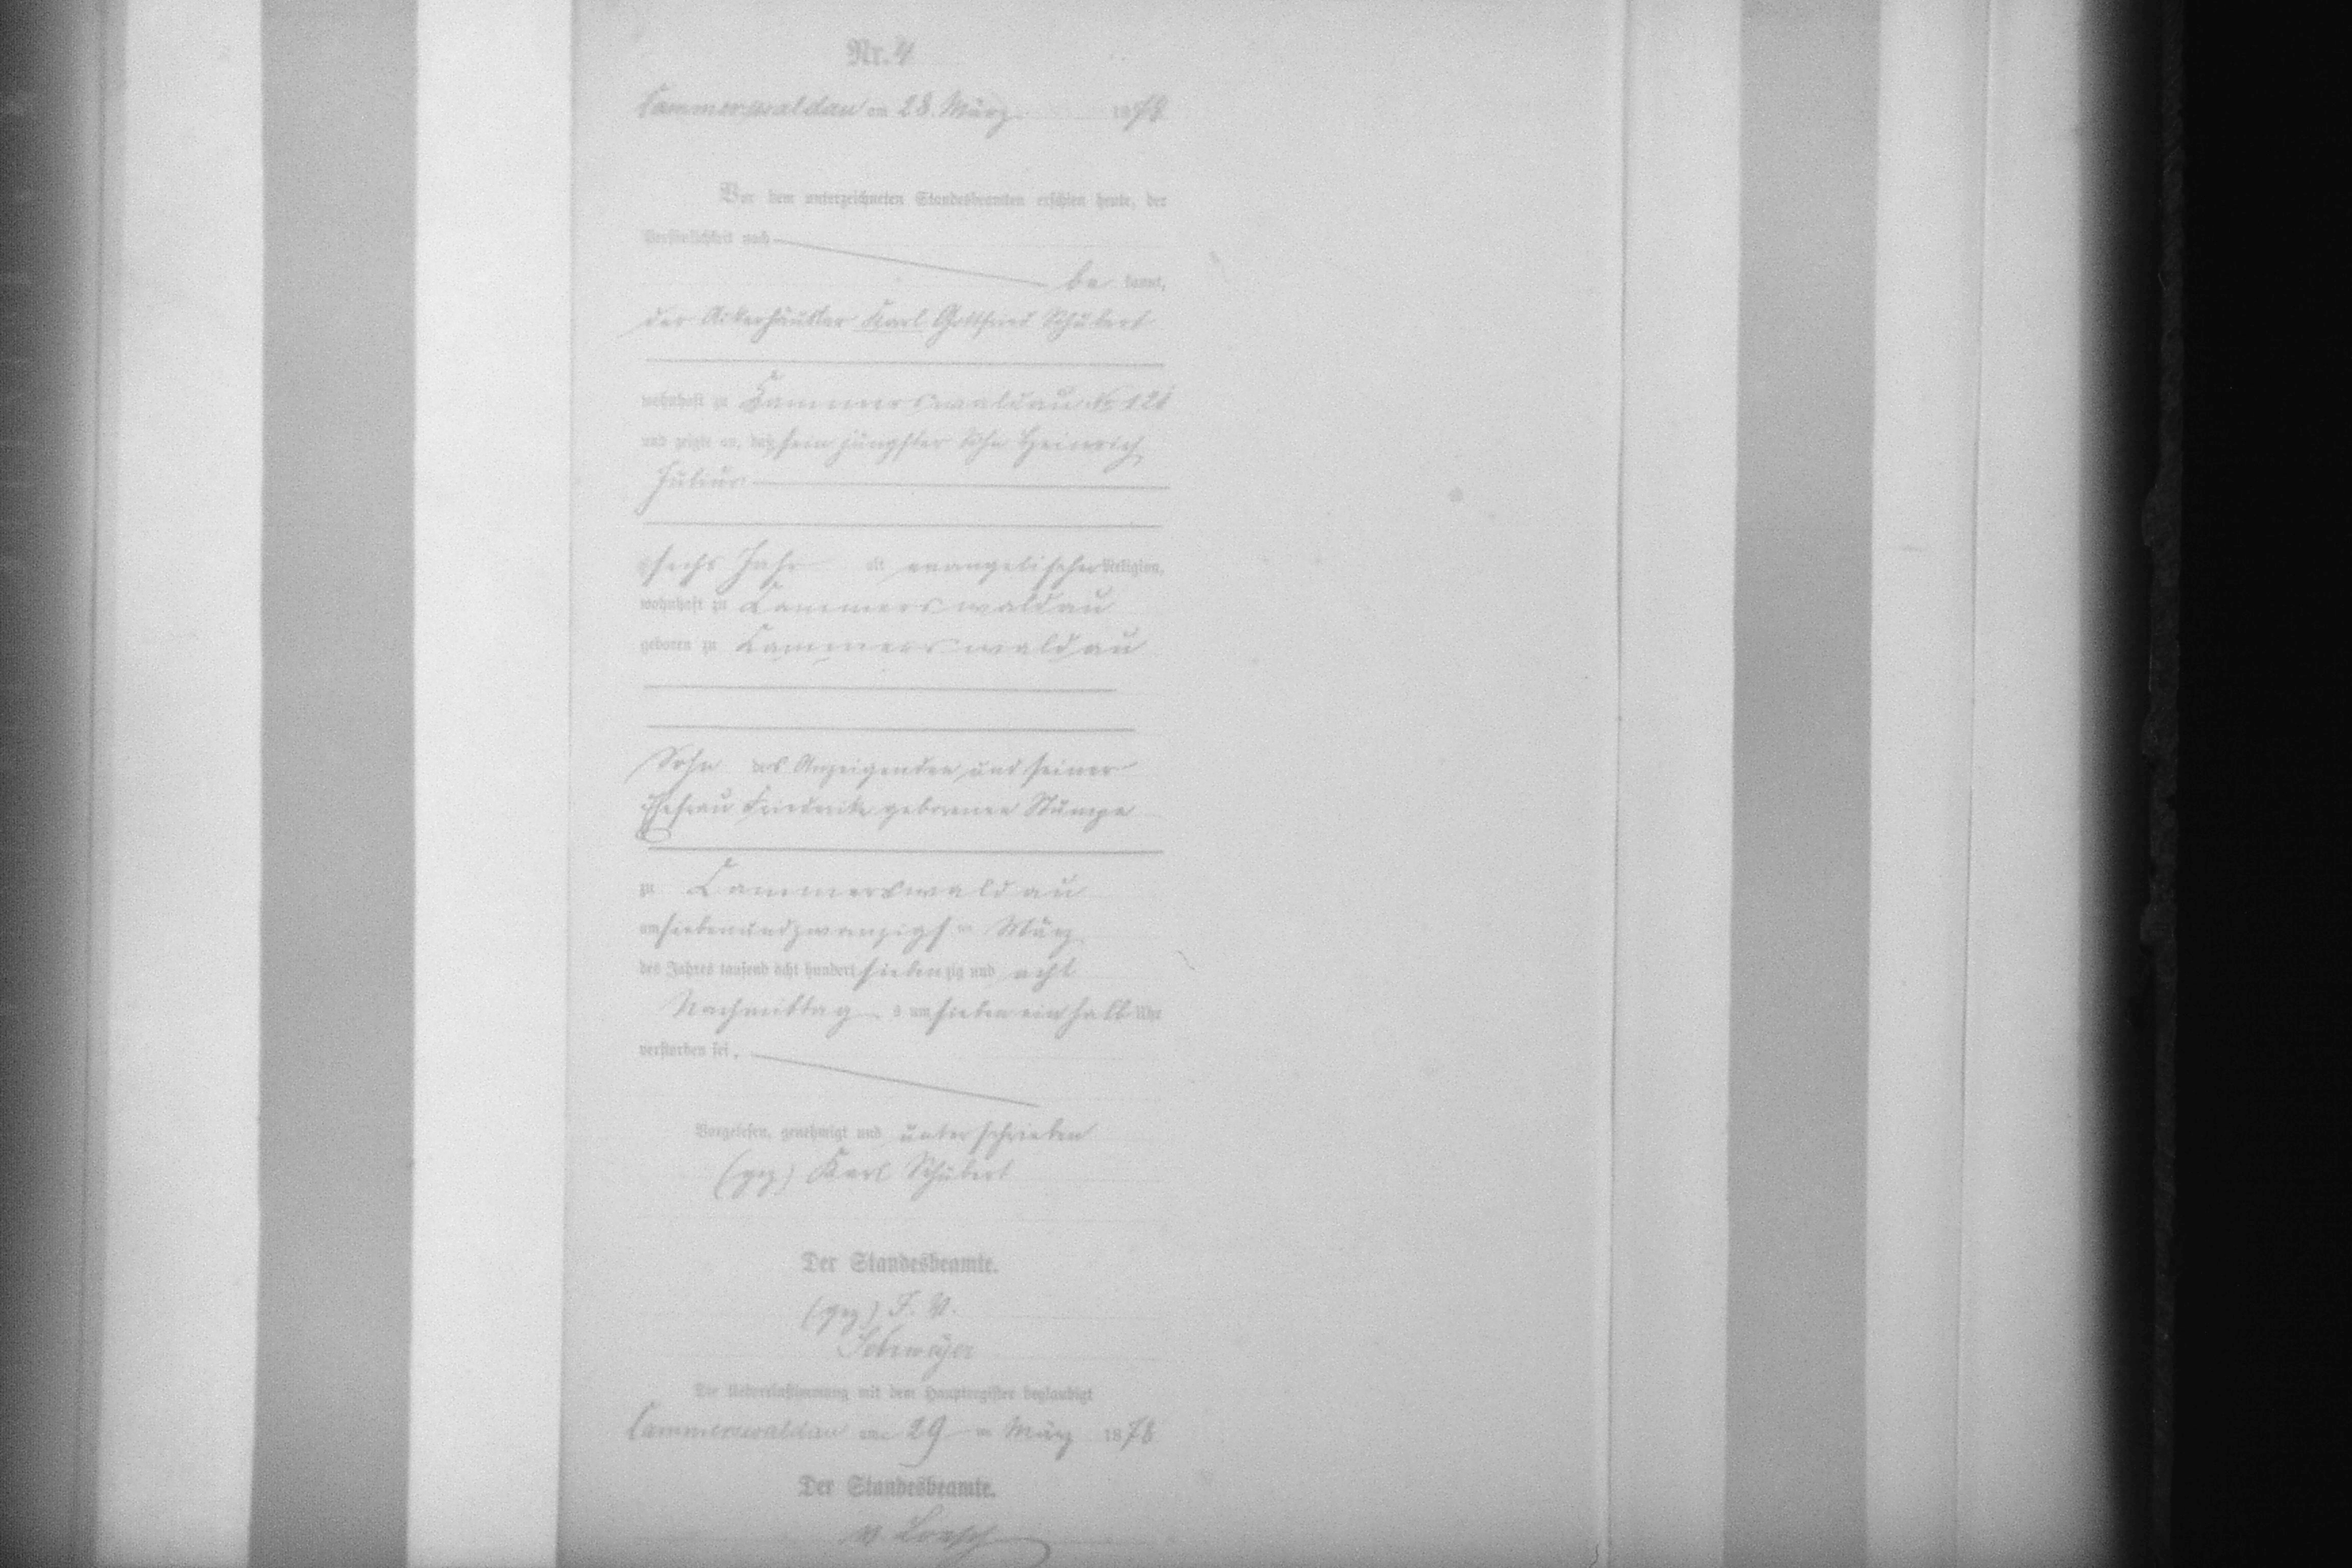 Nr. 4
Cammerswaldau am 28. März 1878
Vor dem unterzeichneten Standesbeamten erschien heute, der
Persönlichkeit nach
be kannt,
der Ackerhäusler Karl Gottfried Schubert
wohnhaft zu Cammerswaldau No 121
und zeigte an, daß sein jüngster Sohn Heinrich
Julius
sechs Jahr alt evangelischer Religion,
wohnhaft zu Cammerswaldau
geboren zu Cammerswaldau
Sohn des Anzeigenden und seiner
Ehefrau Friederike geborenen Stumpe
zu Cammerswaldau
am siebenundzwanzigsten März
des Jahres tausend acht hundert siebenzig und acht
Nachmittags um sieben ein halb Uhr
verstorben sei.
Vorgelesen, genehmigt und unterschrieben
(gez) Karl Schubert
Der Standesbeamte.
(gez) J. V.
Die Uebereinstimmung mit dem Hauptregister beglaubigt
Cammerswaldau am 29 ten März 1878
Der Standesbeamte.
v. Loesch